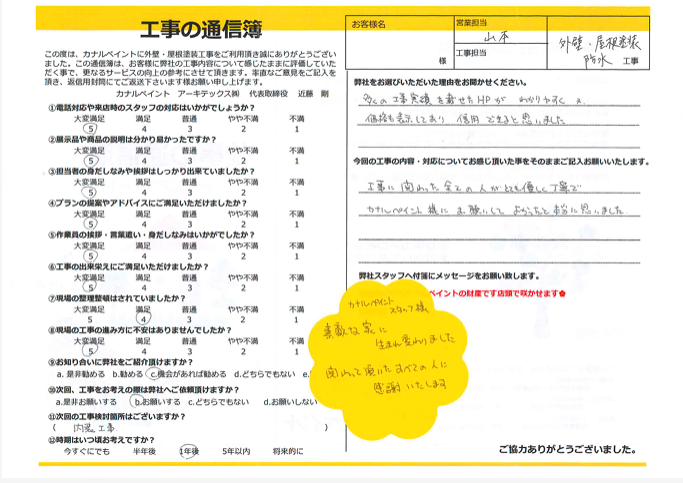 工事の通信簿
この度は、カナルペイントに外壁・屋根塗装工事をご利用頂き誠にありがとうござい
ました。この通信簿は、お客様に弊社の工事内容について感じたままに評価していた
だく事で、更なるサービスの向上の参考にさせて頂きます。率直なご意見をご記入を
頂き、返信用封筒にてご返送下さいます様お願い申し上げます。
カナルペイント アーキテックス㈱ 代表取締役 近藤 剛
①電話対応や来店時のスタッフの対応はいかがでしょうか?
大変満足 満足 普通 やや不満 不満
5 4 3 2 1
②展示品や商品の説明は分かり易かったですか?
大変満足 満足 普通 やや不満 不満
5 4 3 2 1
③担当者の身だしなみや挨拶はしっかり出来ていましたか?
大変満足 満足 普通 やや不満 不満
5 4 3 2 1
④プランの提案やアドバイスにご満足いただけましたか?
大変満足 満足 普通 やや不満 不満
5 4 3 2 1
⑤作業員の挨拶・言葉遣い・身だしなみはいかがでしたか?
大変満足 満足 普通 やや不満 不満
5 4 3 2 1
⑥工事の出来栄えにご満足いただけましたか?
大変満足 満足 普通 やや不満 不満
5 4 3 2 1
⑦現場の整理整頓はされていましたか?
大変満足 満足 普通 やや不満 不満
5 4 3 2 1
⑧現場の工事の進み方に不安はありませんでしたか?
大変満足 満足 普通 やや不満 不満
5 4 3 2 1
⑨お知り合いに弊社をご紹介頂けますか?
a. 是非勧める b.勧める c.機会があれば勧める d.どちらでもない e.
⑩次回、工事をお考えの際は弊社へご依頼頂けますか?
a.是非お願いする b.お願いする c.どちらでもない d.お願いしない
⑪次回の工事検討箇所はございますか?
( 内装工事
⑫時期はいつ頃お考えですか?
今すぐにでも 半年後 1年後 5年以内 将来的に
お客様名
様
営業担当
山本
工事担当
外壁・屋根塗装
防水 工事
弊社をお選びいただいた理由をお聞かせください。
多くの工事実績を載せたHPが わかりやすく
価格も表示しており 信用できると思いました
今回の工事の内容・対応についてお感じ頂いた事をそのままご記入お願いいたします。
工事に関わった全ての人がとても優しく丁寧で
カナルペイント様に お願いして よかったと本当に思いました
弊社スタッフへ付箋にメッセージをお願い致します。
ペイントの財産です店頭で咲かせます
カナルペイント
スタッフ様
素敵な家に
生まれ変わりました
関わって頂いたすべての人に
感謝いたします
ご協力ありがとうございました。